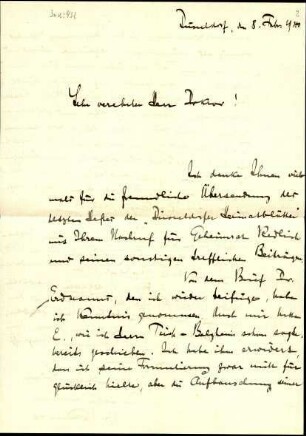 Düsseldorf, den 8. Febr. 19
Sehr verehrter Herr Doktor!
Ich danke Ihnen viel-
mals für die freundliche Übersendung der
letzten Hefte der "Düsseldorfer Heimatblätter"
mit Ihrem Nachruf für Geheimrat Redlich
und seinen sonstigen trefflichen Beiträgen.
Von dem Brief Dr.
Erdmanns, den ich wieder beifüge, habe
ich Kenntnis genommen. Auch mir hatte
E., wie ich Herrn schon sagte,
bereits geschrieben. Ich habe ihm erwidert,
dass ich seine Formulierung zwar nicht für
glücklich hielte, aber die Aufbauschung seiner